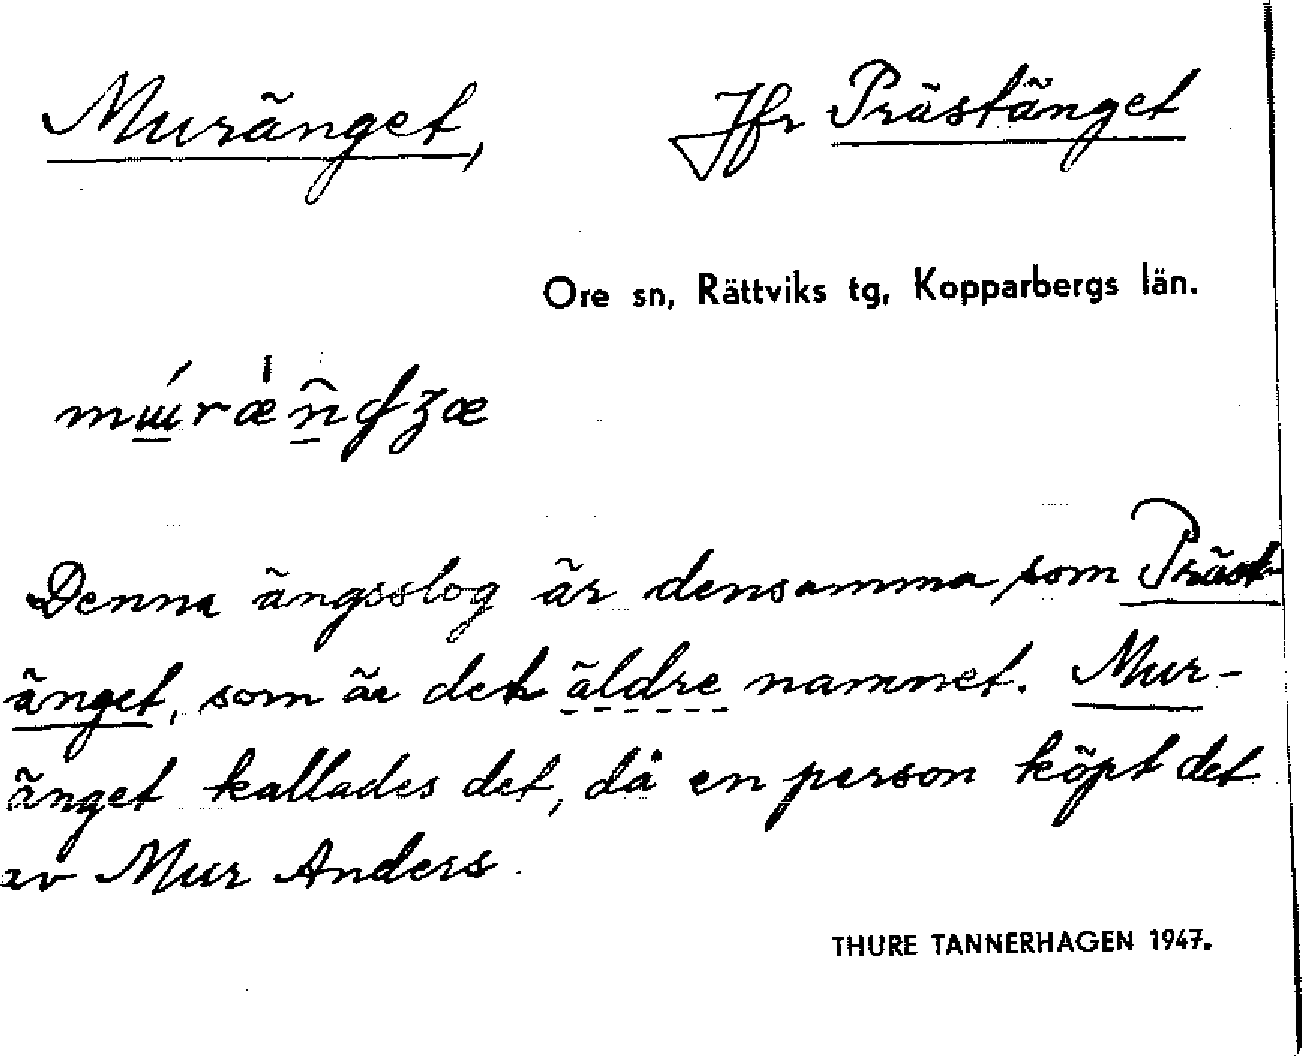 Muränget, Jfr Prästänget
Ore sn, Rättviks tg, Kopparbergs län.
Denna ängsslog är densamma, som Präst-
änget, som är det äldre namnet. Mur-
änget kallades det, då en person köpt det
av Mur Anders.
THURE TANNERHAGEN 1947.